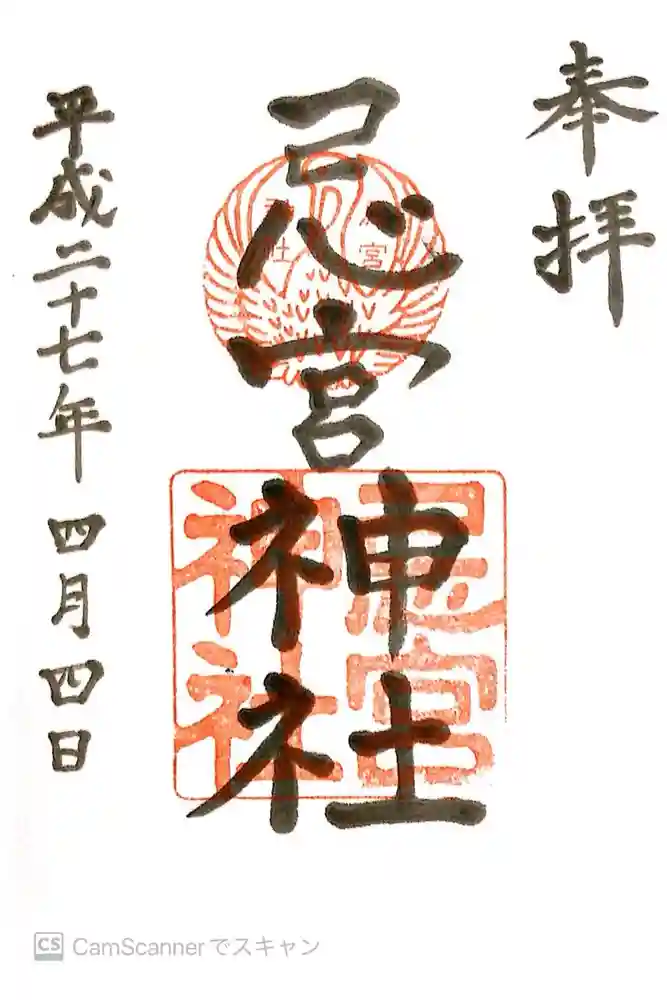 奉拝
忌宮神社
平成二十七年 四月四日
忌宮
神社
忌宮
神社
CS CamScannerでスキャン